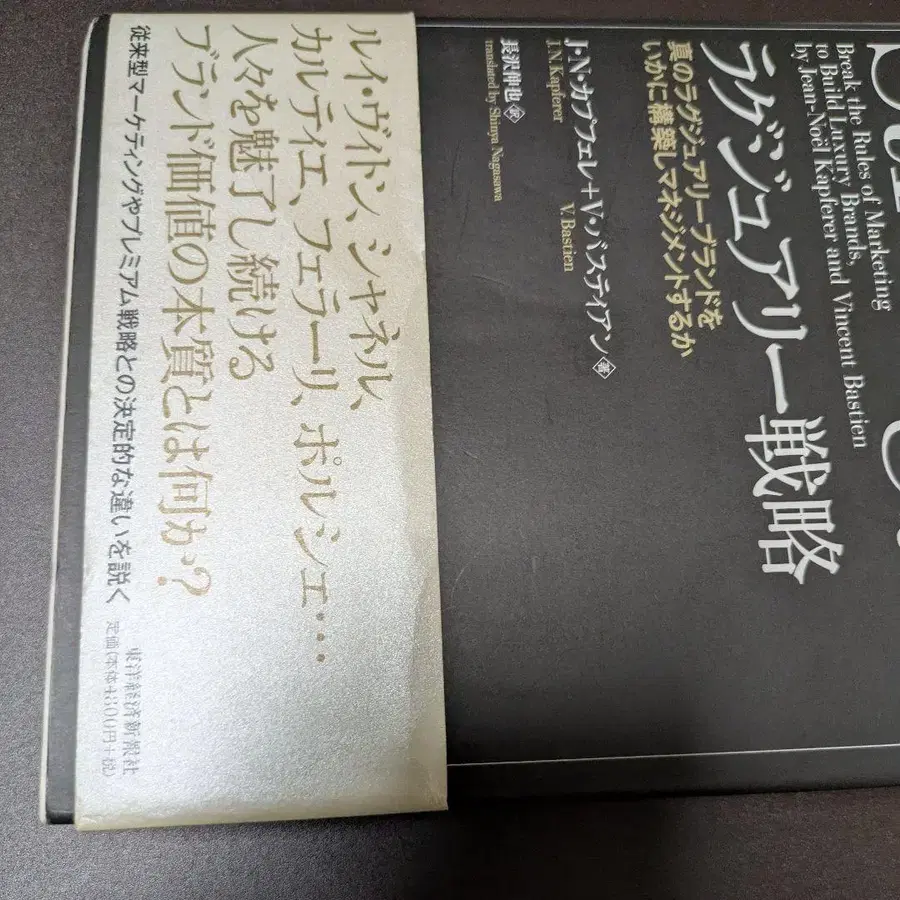 Break the Rules of Marketing
to Build Luxury Brands,
by Jean-Noël Kapferer and Vincent Bastien
ラグジュアリー戦略
真のラグジュアリーブランドを
いかに構築しマネジメントするか
J・N・カプフェレ+V・バスティアン 著
J.N.Kapferer
V.Bastien
長沢伸也 訳
translated by Shinya Nagasawa
ルイ・ヴィトン、シャネル、
カルティエ、フェラーリ、ポルシェ…
人々を魅了し続ける
ブランド価値の本質とは何か?
従来型マーケティングやプレミアム戦略との決定的な違いを説く
東洋経済新報社
定価(本体4800円+税)